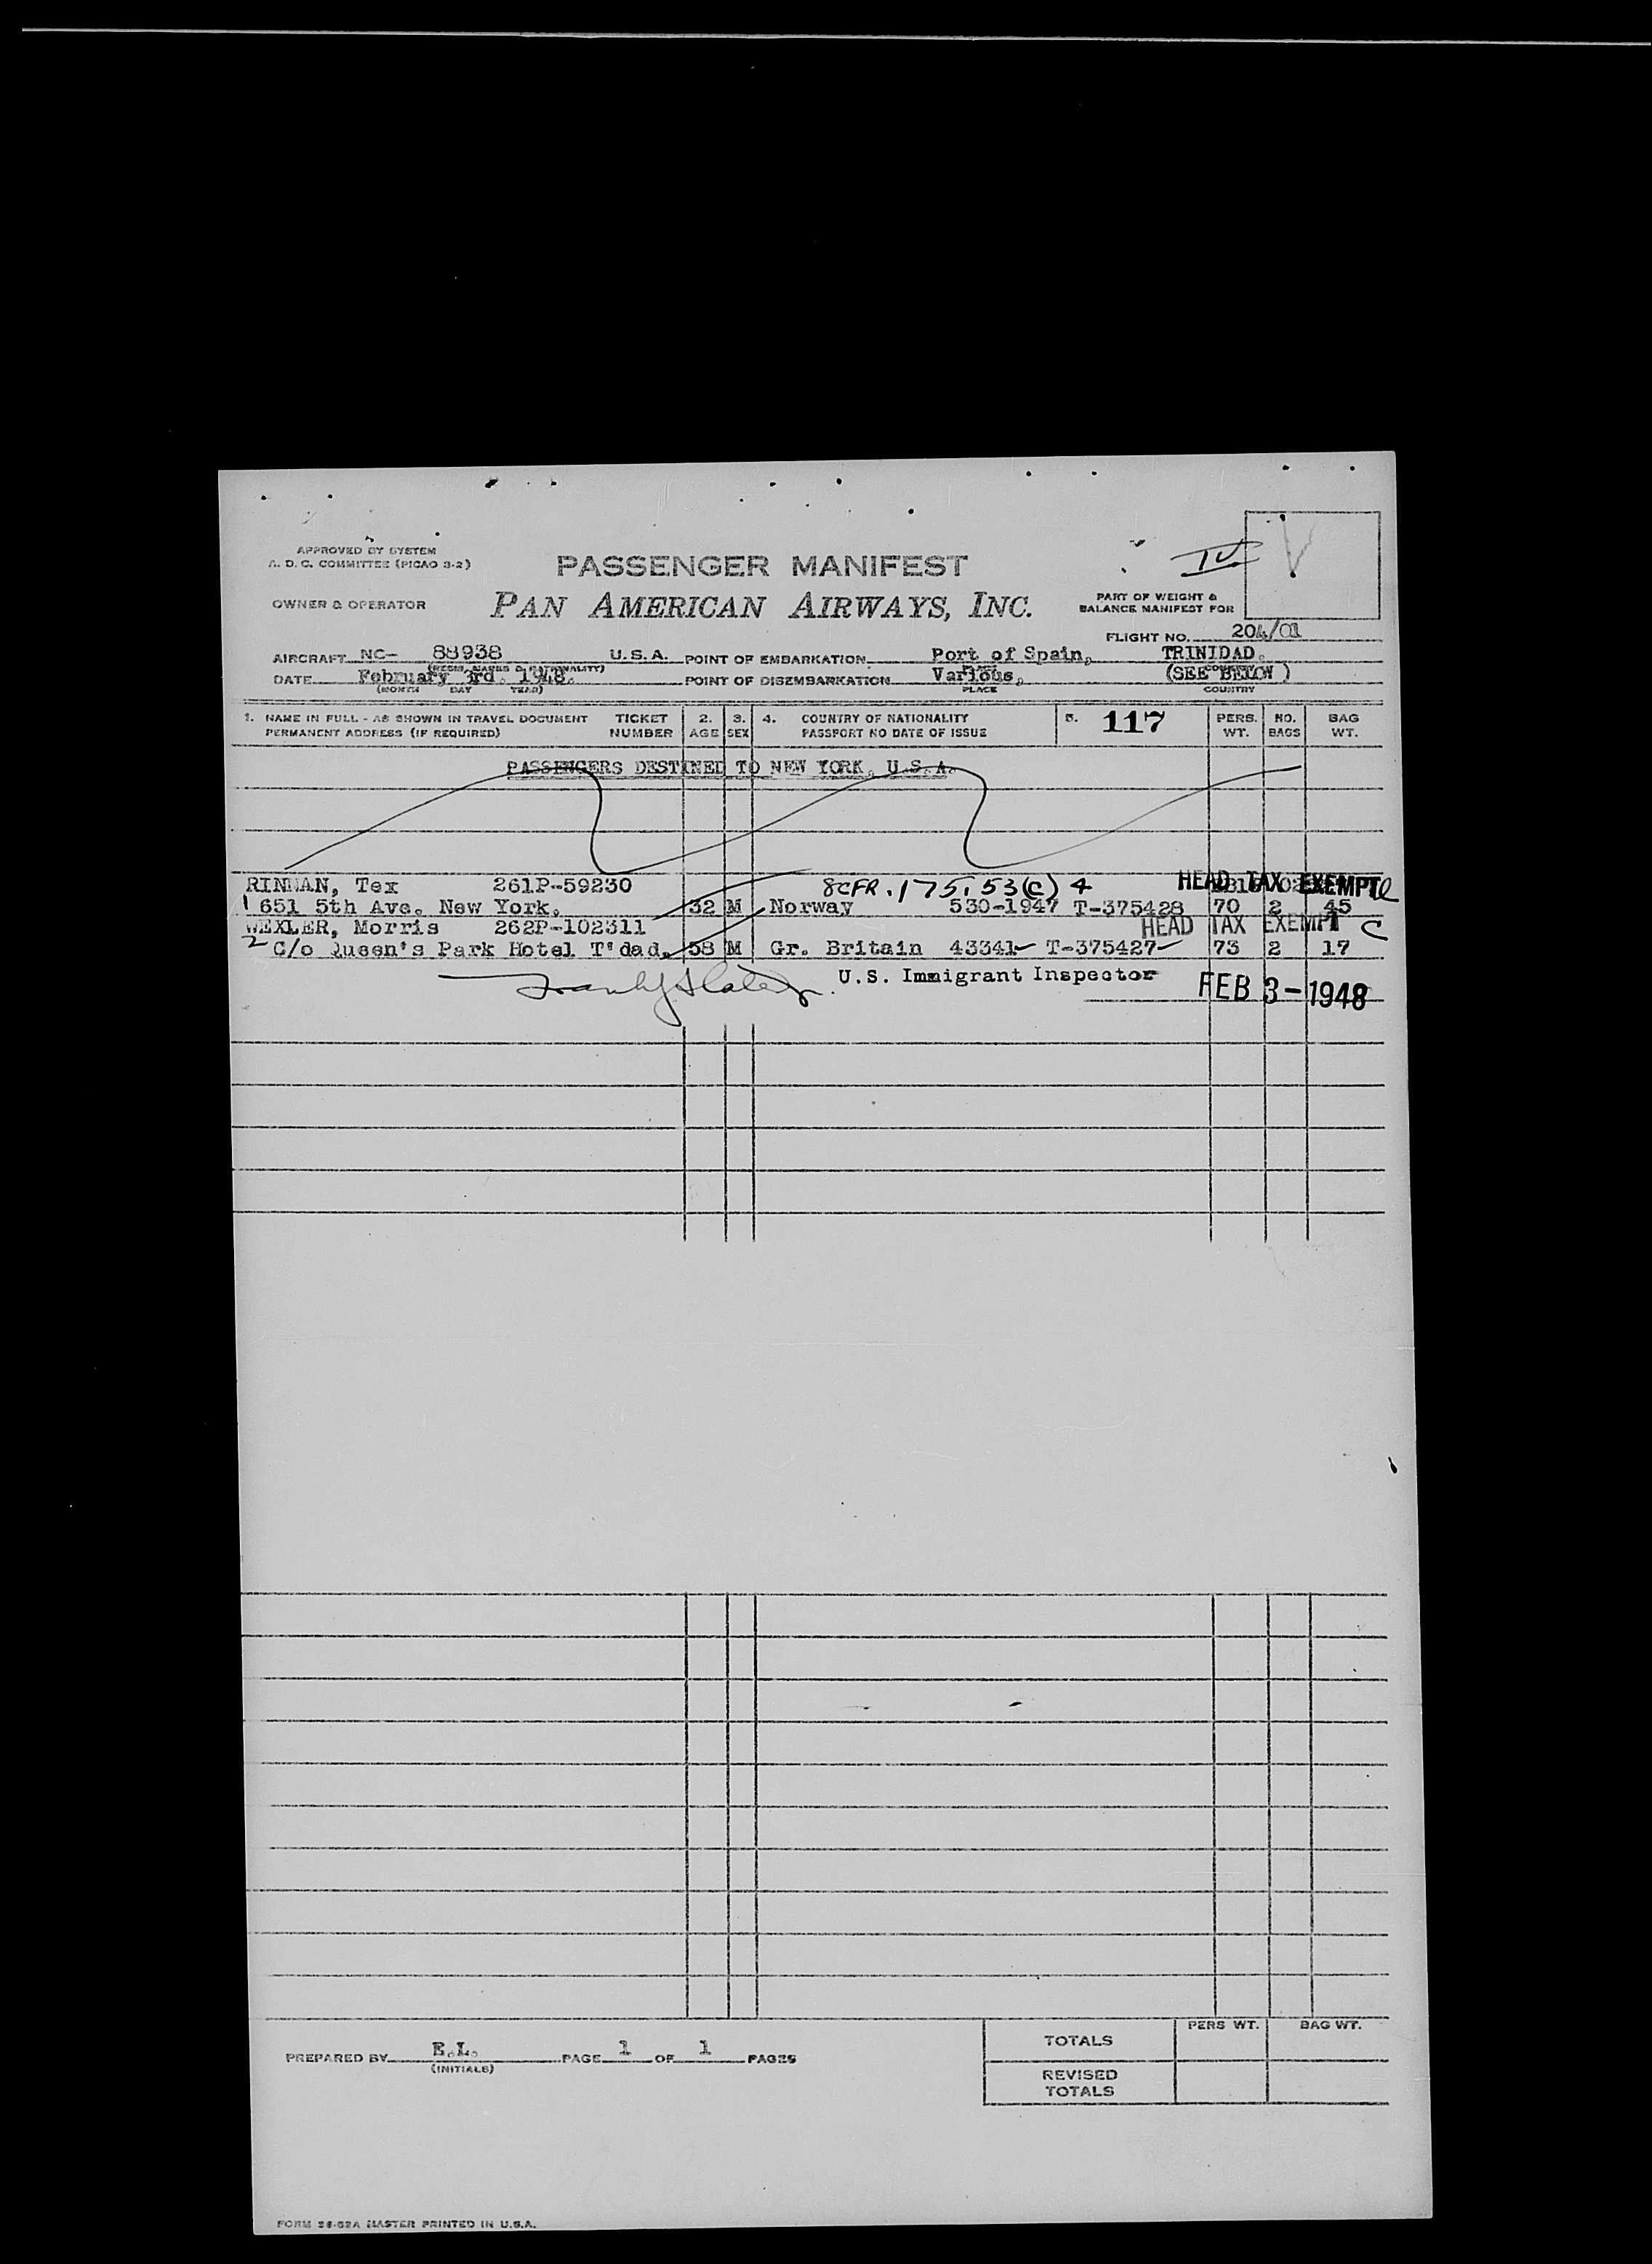 APPROVED BY SYSTEM
A. D. C. COMMITTEE (PICAO 3-2)
PASSENGER MANIFEST
IV
OWNER & OPERATOR PAN AMERICAN AIRWAYS, INC.
PART OF WEIGHT &
BALANCE MANIFEST FOR
FLIGHT NO. 204/01
AIRCRAFT NC- 88938 U.S.A. POINT OF EMBARKATION Port of Spain, TRINIDAD.
DATE February 3rd. 1948. POINT OF DISEMBARKATION Various, (SEE BELOW)
(MONTH DAY YEAR) PLACE COUNTRY
1. NAME IN FULL - AS SHOWN IN TRAVEL DOCUMENT TICKET 2. 3. 4. COUNTRY OF NATIONALITY 5. 117 PERS. NO. BAG
PERMANENT ADDRESS (IF REQUIRED) NUMBER AGE SEX PASSPORT NO DATE OF ISSUE WT. BAGS WT.
PASSENGERS DESTINED TO NEW YORK, U.S.A.
RINNAN, Tex 261P-59230 8CFR.175.53(c) 4 HEAD TAX EXEMPT
1 651 5th Ave. New York. 32 M Norway 530-1947 T-375428 70 2 45
WEXLER, Morris 262P-102311 HEAD TAX EXEMPT C
2 C/o Queen's Park Hotel T'dad. 58 M Gr. Britain 43341 T-375427 73 2 17
U.S. Immigrant Inspector FEB 3-1948
PREPARED BY E.L. PAGE 1 OF 1 PAGES
(INITIALS)
PERS WT. BAG WT.
TOTALS
REVISED
TOTALS
FORM 26-52A MASTER PRINTED IN U.S.A.